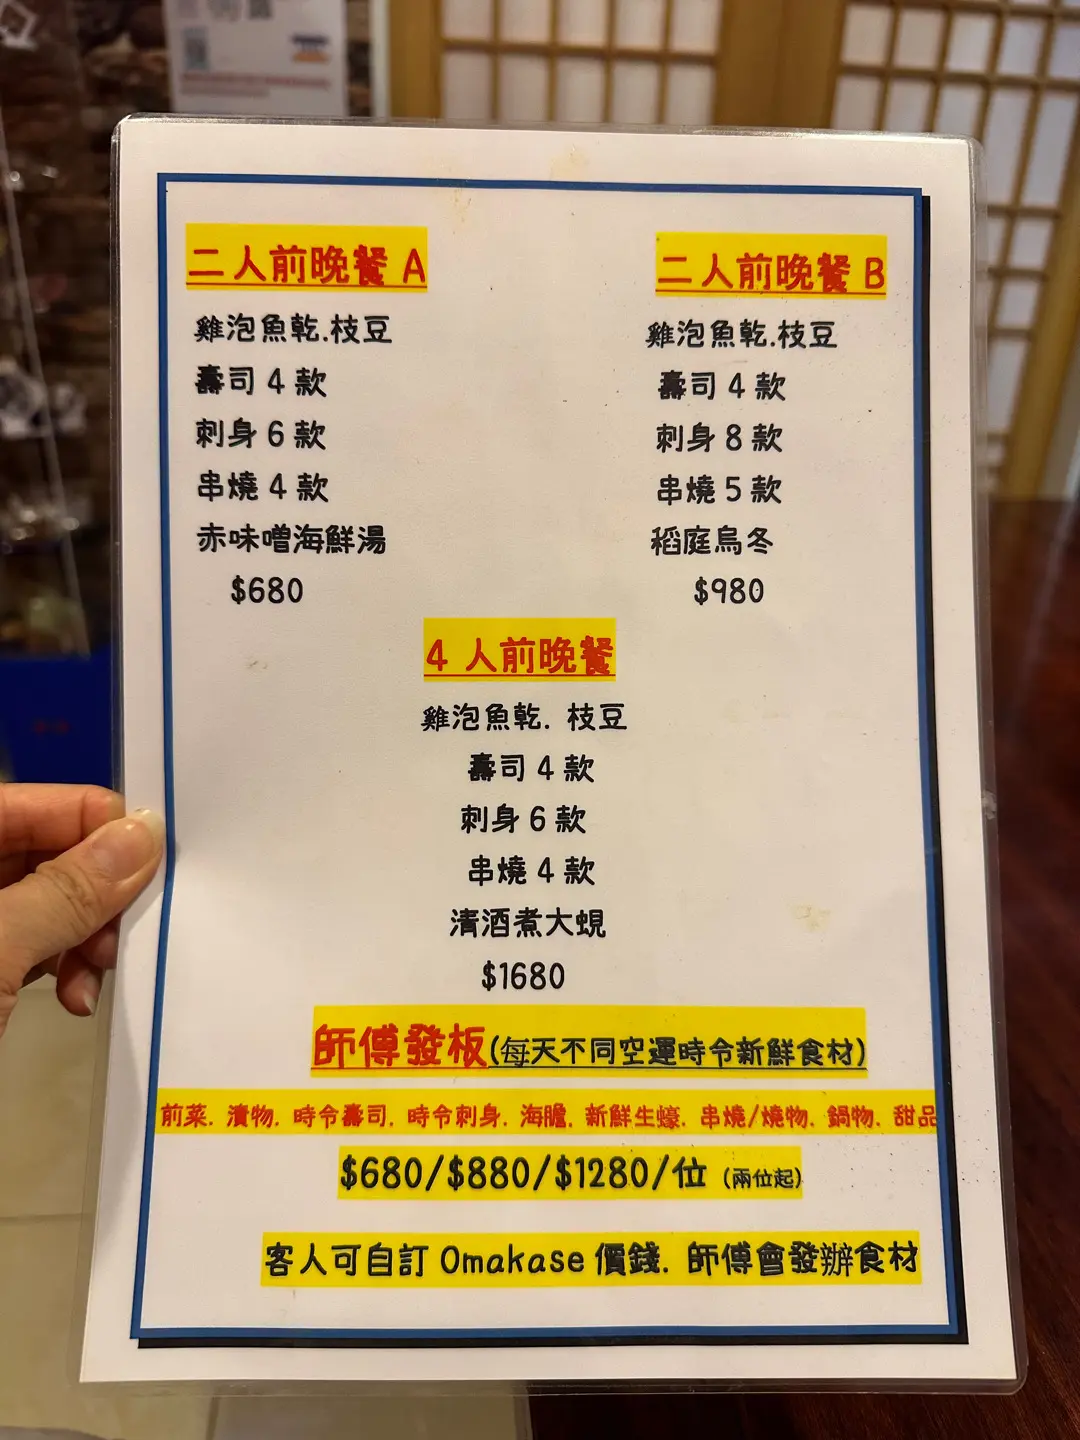 二人前晚餐 A
雞泡魚乾.枝豆
壽司 4 款
刺身 6 款
串燒 4 款
赤味噌海鮮湯
$680
二人前晚餐 B
雞泡魚乾.枝豆
壽司 4 款
刺身 8 款
串燒 5 款
稻庭烏冬
$980
4 人前晚餐
雞泡魚乾. 枝豆
壽司 4 款
刺身 6 款
串燒 4 款
清酒煮大蜆
$1680
師傅發板(每天不同空運時令新鮮食材)
前菜. 漬物. 時令壽司. 時令刺身. 海膽. 新鮮生蠔. 串燒/燒物. 鍋物. 甜品
$680/$880/$1280/位 (兩位起)
客人可自訂 Omakase 價錢. 師傅會發辦食材